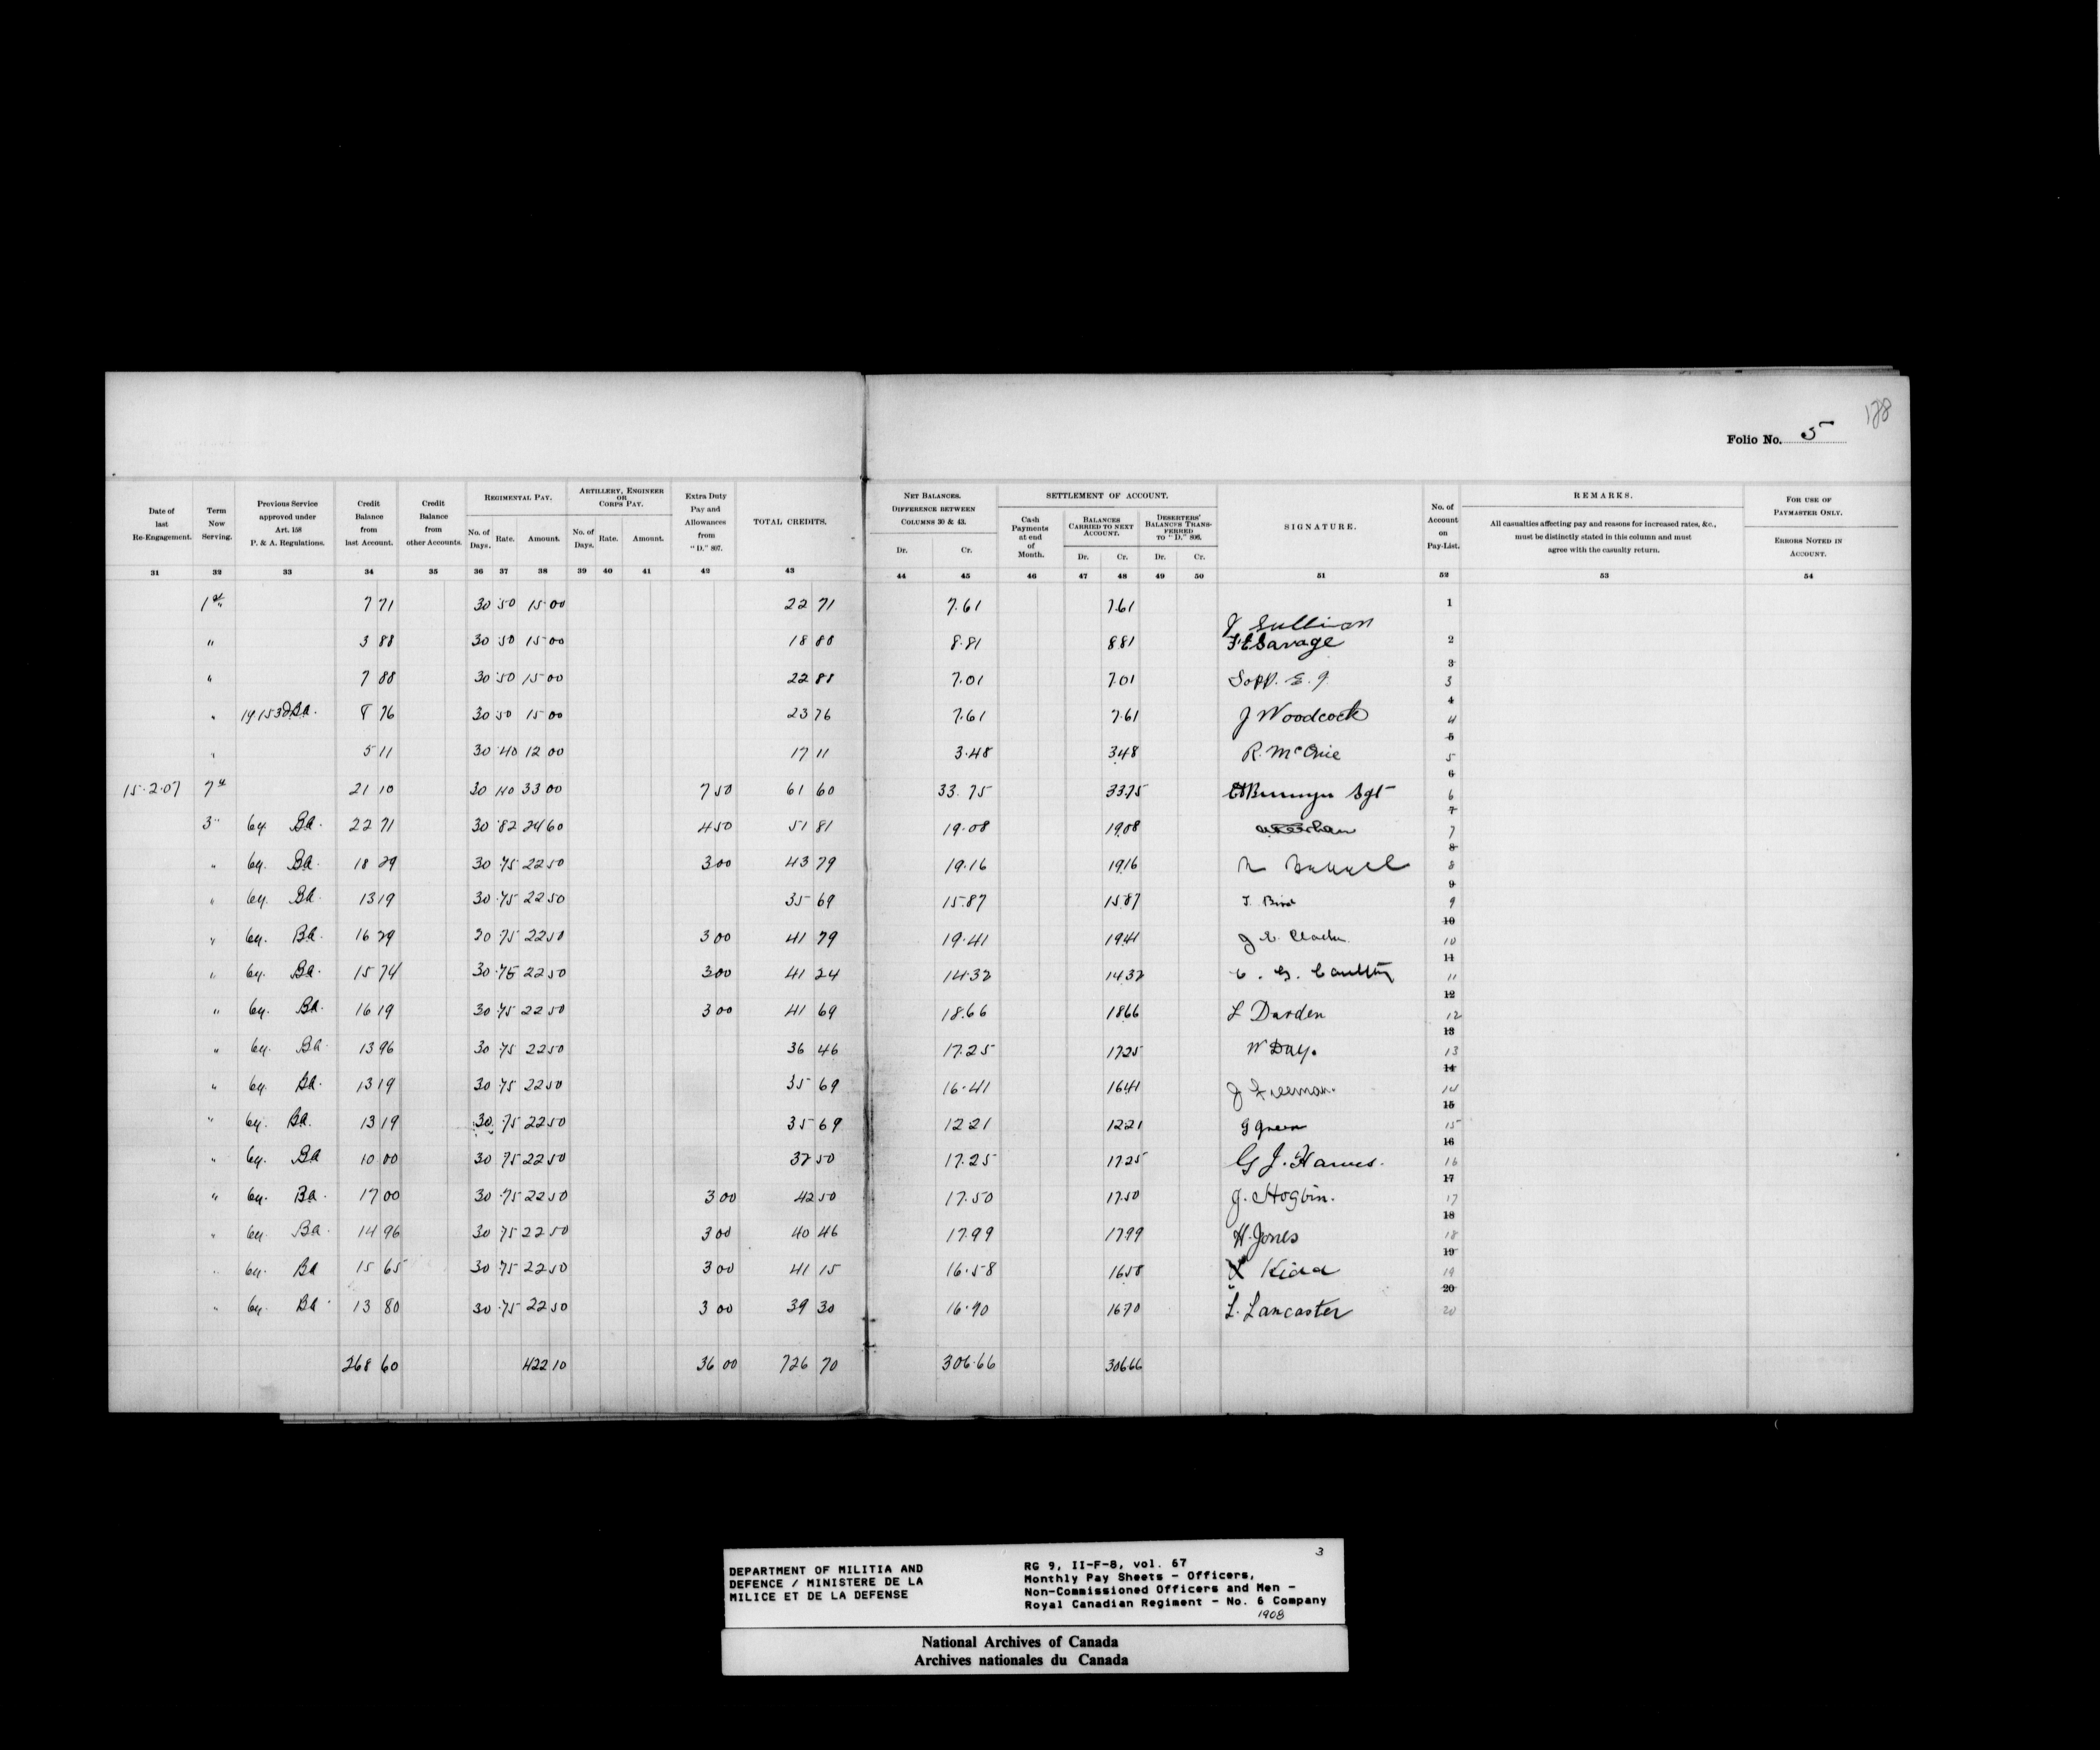 178
Folio No. 5
Date of last Re-Engagement. Term Now Serving. Previous Service approved under Art. 158 P. & A. Regulations. Credit Balance from last Account. Credit Balance from other Accounts. REGIMENTAL PAY. No. of Days. Rate. Amount. ARTILLERY, ENGINEER OR CORPS PAY. No. of Days. Rate. Amount. Extra Duty Pay and Allowances from "D." 807. TOTAL CREDITS. NET BALANCES. DIFFERENCE BETWEEN COLUMNS 30 & 43. Dr. Cr. SETTLEMENT OF ACCOUNT. Cash Payments at end of Month. BALANCES CARRIED TO NEXT ACCOUNT. Dr. Cr. DESERTERS' BALANCES TRANSFERRED TO "D." 806. Dr. Cr. SIGNATURE. No. of Account on Pay-List. REMARKS. All casualties affecting pay and reasons for increased rates, &c., must be distinctly stated in this column and must agree with the casualty return. FOR USE OF PAYMASTER ONLY. ERRORS NOTED IN ACCOUNT.
31 32 33 34 35 36 37 38 39 40 41 42 43 44 45 46 47 48 49 50 51 52 53 54
1st 7 71 30 50 15 00 22 71 7.61 7.61 J Sullivan 1
" 3 88 30 50 15 00 18 88 8.81 8 81 F E Savage 2
" 7 88 30 50 15 00 22 88 7.01 7.01 Sopp. E. J. 3 3
" Ba. 8 76 30 50 15 00 23 76 7.61 7.61 J Woodcock 4 4
" 5 11 30 40 12 00 17 11 3.48 3.48 R. McCrie 5 5
15.2.07 7th 21 10 30 1 10 33 00 7 50 61 60 33.75 33.75 Sgt 6 6
3" 6y. Ba. 22 71 30 82 24 60 4 50 51 81 19.08 19.08 7 7
" 6y. Ba. 18 29 30 75 22 50 3 00 43 79 19.16 19.16 8 8
" 6y. Ba. 13 19 30 75 22 50 35 69 15.87 15.87 T. Bird 9 9
" 6y. Ba. 16 29 30 75 22 50 3 00 41 79 19.41 19.41 J. E. 10 10
" 6y. Ba. 15 74 30 75 22 50 3 00 41 24 14.32 14.32 11 11
" 6y. Ba. 16 19 30 75 22 50 3 00 41 69 18.66 18.66 L Darden 12 12
" 6y. Ba. 13 96 30 75 22 50 36 46 17.25 17.25 W Day. 13 13
" 6y. Ba. 13 19 30 75 22 50 35 69 16.41 16.41 J Freeman. 14 14
" 6y. Ba. 13 19 30 75 22 50 35 69 12 21 12 21 G Green 15 15
" 6y. Ba 10 00 30 75 22 50 32 50 17.25 17.25 G J. Hawes. 16 16
" 6y. Ba. 17 00 30 75 22 50 3 00 42 50 17.50 17.50 J. Hogbin. 17 17
" 6y. Ba. 14 96 30 75 22 50 3 00 40 46 17.99 17.99 H. Jones 18 18
" 6y. Ba 15 65 30 75 22 50 3 00 41 15 16.58 16.58 Kidd 19 19
" 6y. Ba. 13 80 30 75 22 50 3 00 39 30 16.70 16.70 L. Lancaster 20 20
268 60 422 10 36 00 726 70 306.66 306.66
3
DEPARTMENT OF MILITIA AND
DEFENCE / MINISTERE DE LA
MILICE ET DE LA DEFENSE
RG 9, II-F-8, vol. 67
Monthly Pay Sheets - Officers,
Non-Commissioned Officers and Men -
Royal Canadian Regiment - No. 6 Company
1908
National Archives of Canada
Archives nationales du Canada